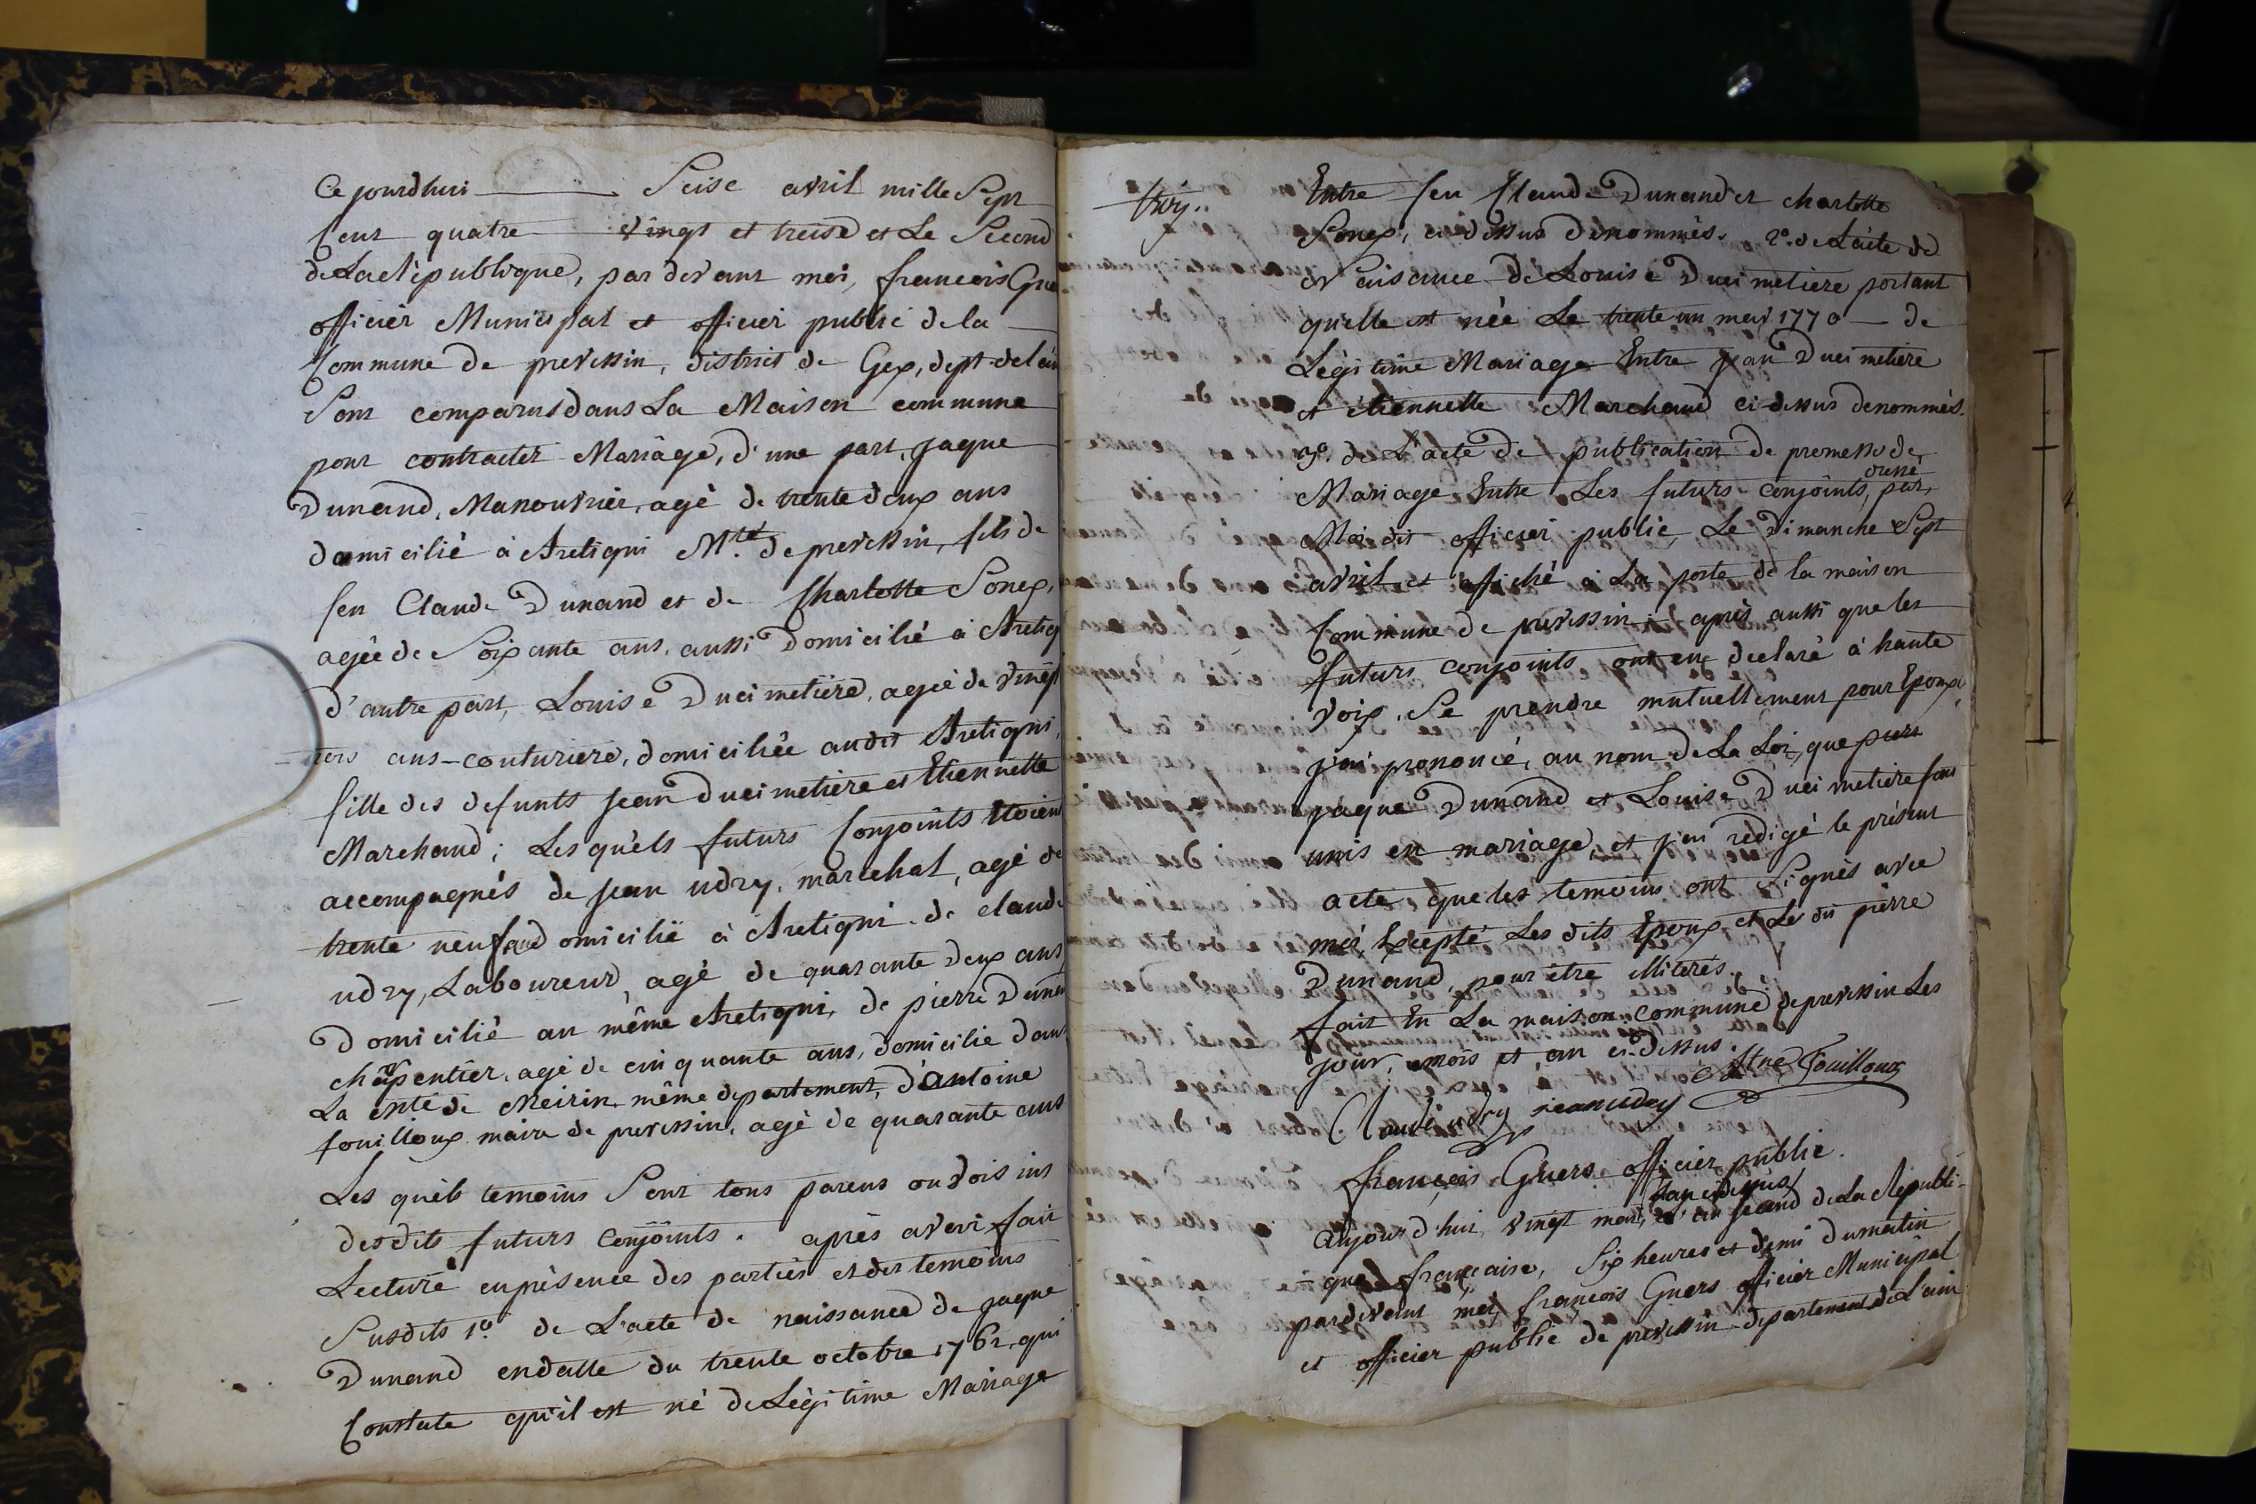 Ce jourdhui Seise avril mille Sept
Cent quatre vingt et treise et Le Second
de La république, par devant moi, francois
officier Municipal et officier public de la
Commune de prevessin, district de Gex, dept. de l'ain
Sont comparus dans La Maison commune
pour contracter Mariâge, d'une part, jaque
Dunand, Manouvrier, agé de trente deux ans
domicilié à Aretigni M.té de prevessin, fils de
feu Claude Dunand et de Charlotte Sonex,
agée de Soixante ans, aussi domicilié à
d'autre part, Louise Ducimetière, agée de vingt
trois ans couturiere, domiciliée audit Aretigni,
fille des defunts Jean Ducimetière et Etiennette
Marchand; Lesquèls futurs Conjoints étoient
accompagnés de Jean udry, maréchal, agé de
trente neuf domicilié à Aretigni de claude
udry, Laboureur, agé de quarante deux ans
Domicilié au même Aretigni, de pierre Dunand
charpentier, agé de cinquante ans, domicilié dans
La de Meirin même departement, d'antoine
fouilloux maire de prevessin, agé de quarante ans
Les quèls temoins Sont tous parens ou voisins
desdits futurs conjoints. après avoir fait
Lecture en présence des parties et des temoins
Susdits 1º de L'acte de naissance de jaque
Dunand en datte du trente octobre 1762, qui
Constate qu'il est né de Légitime Mariage
Entre feu Claude Dunand et charlotte
Sonex, ci dessus dénommés. 2º. de L'acte de
Naissance de Louise Ducimetiere portant
quelle est née Le trente un mai 1770 de
Légitime Mariage Entre jean Ducimetière
et étiennette Marchand ci-dessus denommés.
3º. de L'acte de publication de promesse de
Mariage Entre Les futurs conjoints, dressé par
Moi dit officier public, Le Dimanche Sept
avril et affiché à La porte de la maison
Commune de prevessin, après aussi que les
futurs conjoints ont eu declaré à haute
voix, Se prendre mutuellement pour Epoux,
j'ai prononcé, au nom de La Loi, que
jaque Dunand et Louise Ducimetière sont
unis en mariage, et j'ai rédigé le présent
acte que les temoins ont Signés avec
moi, Excepté Les dits Epoux et Le dit pierre
Dunand, pour être illiterés.
fait En La maison commune de prevessin Les
jour, mois et an ci-dessus.
Claude udry jean udry Atne Fouilloux
françois Guers officier public.
l'an ci dessus
Aujourd'hui vingt mai, second de La Republi-
que française, Six heures et demi du matin
pardevant moi françois Guers officier Municipal
et officier public de prevessin departement de L'ain